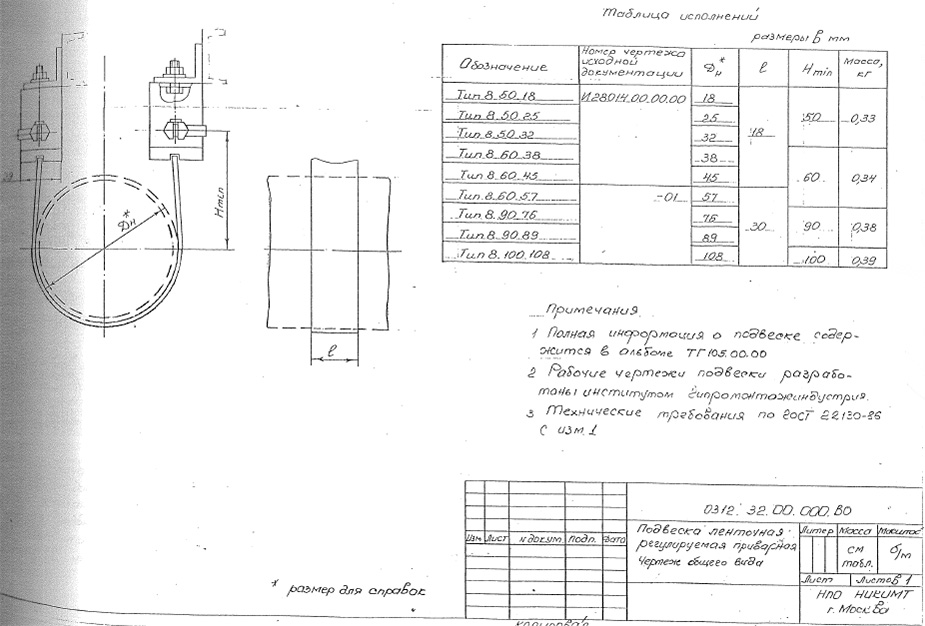 Таблица исполнений
размеры в мм
Обозначение
Номер чертежа
исходной
документации
Дн*
ℓ
Hmin
Масса,
кг
Тип 8.50.18 И28014.00.00.00 18
Тип 8.50.25 25 50 0,33
Тип 8.50.32 32 18
Тип 8.60.38 38
Тип 8.60.45 45 60 0,34
Тип 8.60.57 -01 57
Тип 8.90.76 76
Тип 8.90.89 89 30 90 0,38
Тип 8.100.108 108 100 0,39
Дн*
Hmin
ℓ
Примечания
1 Полная информация о подвеске содер-
жится в альбоме ТГ105.00.00
2 Рабочие чертежи подвески разрабо-
таны институтом Гипромонтажиндустрия.
3 Технические требования по ГОСТ 22130-86
с изм. 1
* размер для справок
0312. 32. 00. 000. ВО
Изм Лист N докум. Подп. Дата
Подвеска ленточная
регулируемая приварная
Чертеж общего вида
Литер Масса Масштаб
см
табл.
б/м
Лист Листов 1
НПО НИКИМТ
г. Москва
Копировал